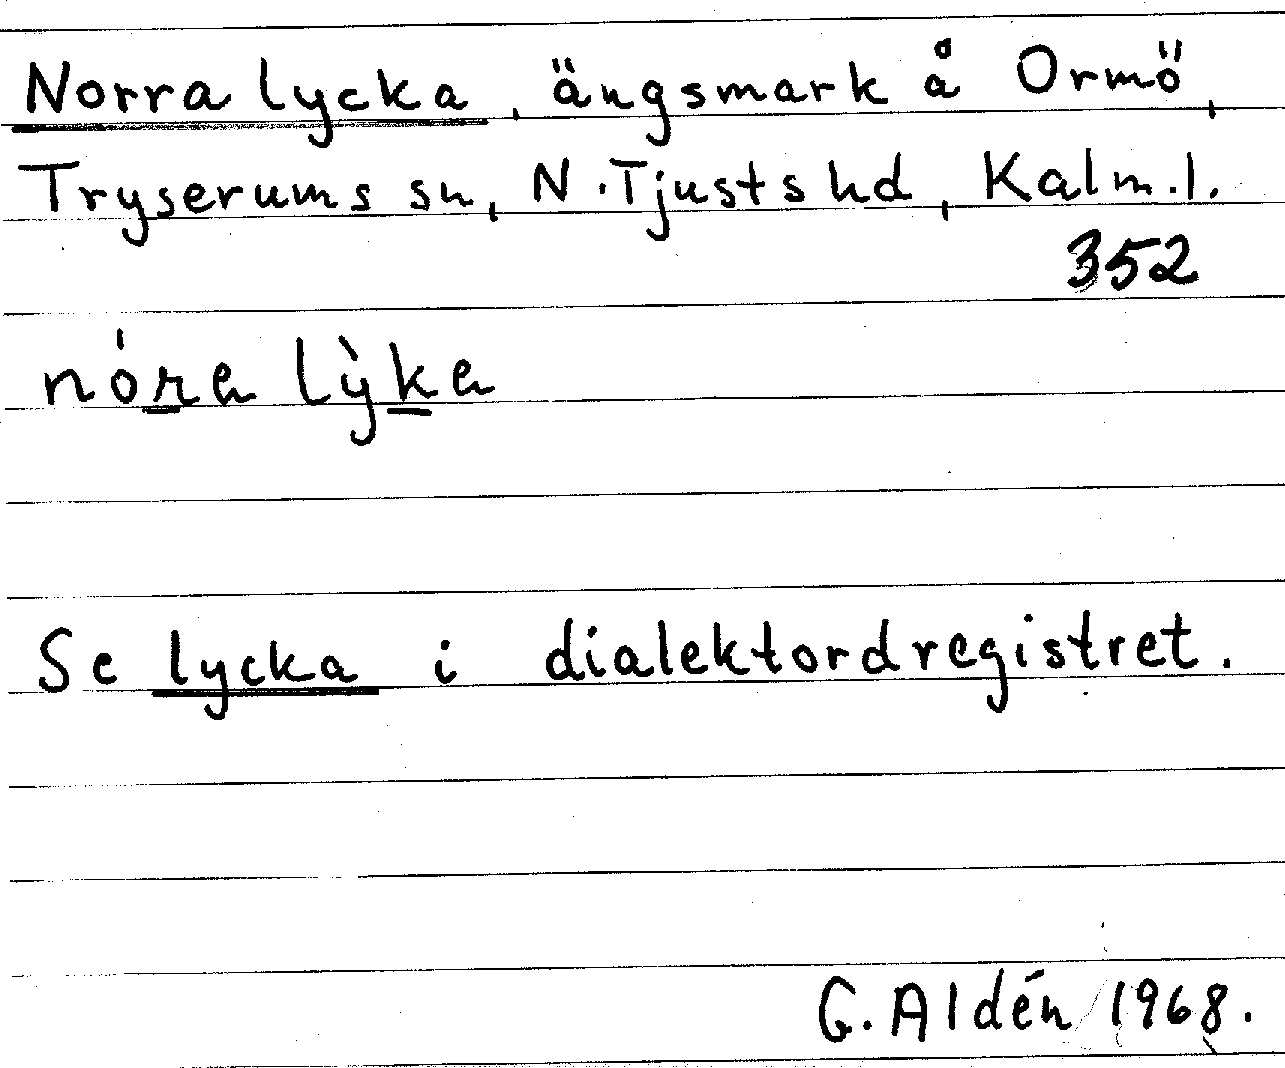 Norra lycka, ängsmark å Ormö,
Tryserums sn, N.Tjusts hd, Kalm.l.
352
nóra lỳka
Se lycka i dialektordregistret.
G. Aldén 1968.